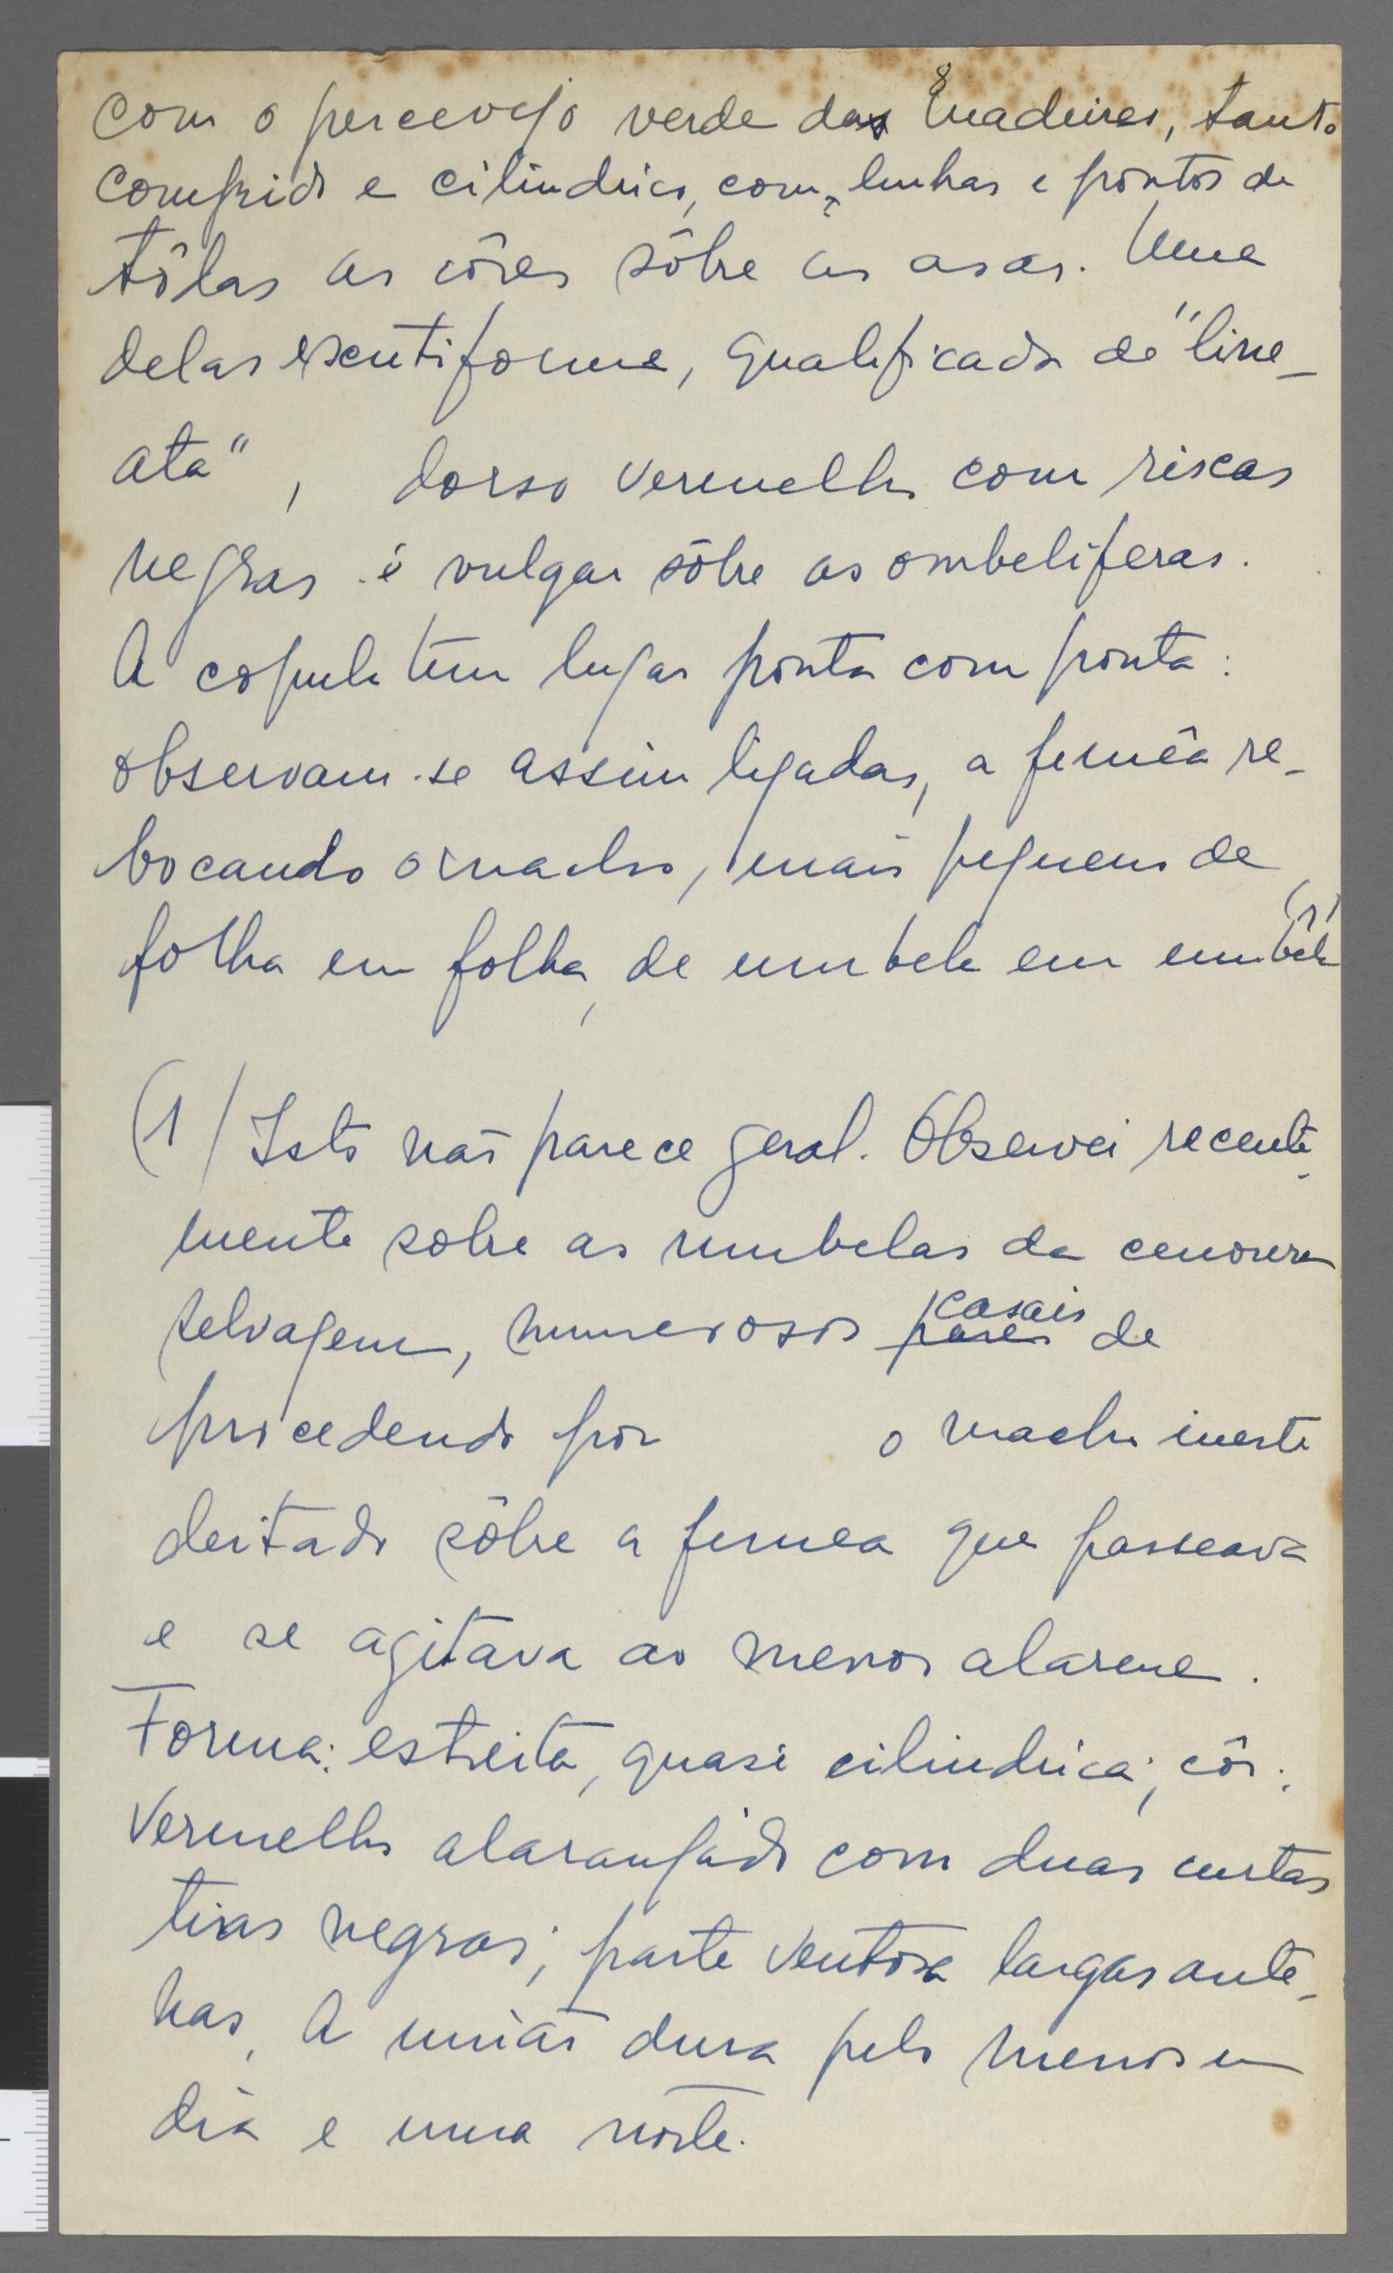 8
com o percevejo verde das madeiras, tanto
comprido e cilindrico, com linhas e pontos de
tôdas as côres sôbre as asas. Uma
delas escutiforme, qualificada de "line-
ata", dorso vermelho com riscas
negras é vulgar sôbre as ombeliferas.
A copula tem lugar ponta com ponta:
observam-se assim ligadas, a femêa re-
bocando o macho, mais pequeno de
folha em folha, de umbela em umbela (1)
(1) Isto não parece geral. Observei recente-
mente sobre as umbelas da cenoura
selvagem, numerosos pares casais de
procedendo por o macho inerte
deitado sôbre a femea que passeava
e se agitava ao menor alarme.
Forma: estreita, quasi cilindrica; côr:
Vermelho alaranjado com duas curtas
tiras negras; parte ventosa largas ante-
nas, A união dura pelo menos um
dia e uma noite.